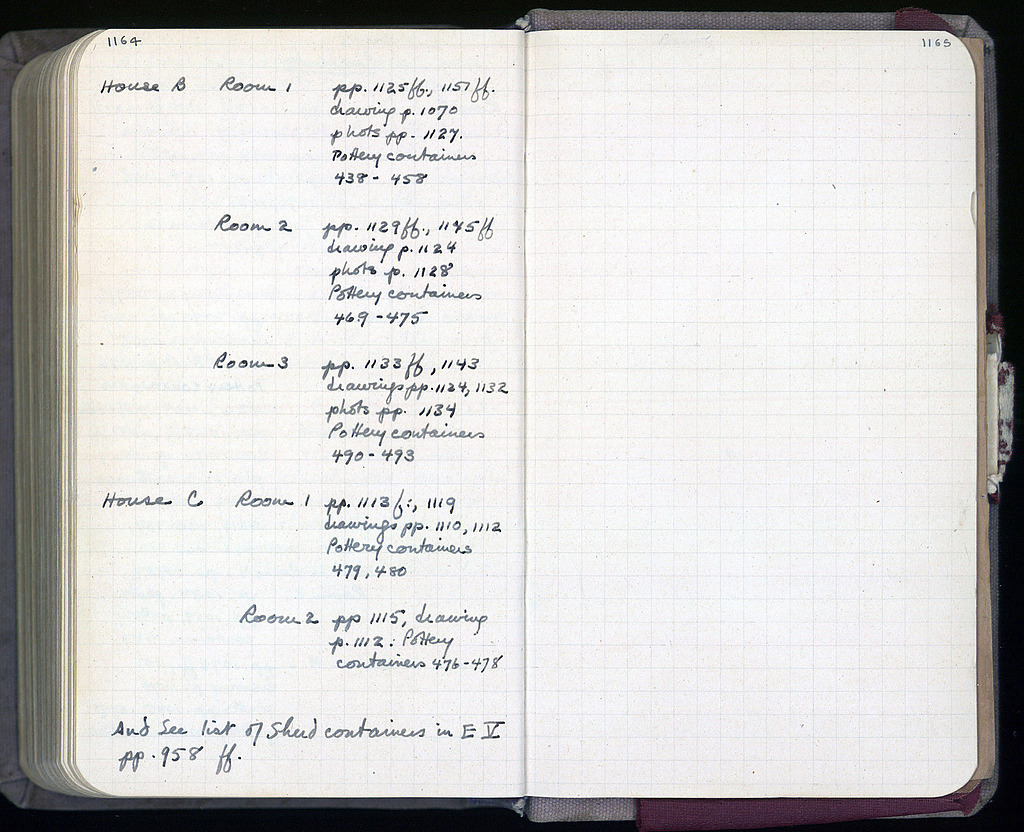 1164
House B Room 1 pp. 1125ff., 1151ff.
drawing p. 1070
phots pp. 1127.
Pottery containers
438 - 458
Room 2 pp. 1129ff., 1145ff
drawing p. 1124
phots p. 1128
Pottery containers
469 - 475
Room 3 pp. 1133ff, 1143
drawings pp. 1124, 1132
phots pp. 1134
Pottery containers
490 - 493
House C Room 1 pp. 1113f:, 1119
drawings pp. 1110, 1112
Pottery containers
479, 480
Room 2 pp 1115, drawing
p. 1112: Pottery
containers 476-478
And See list of Sherd containers in E V
pp. 958 ff.
1165